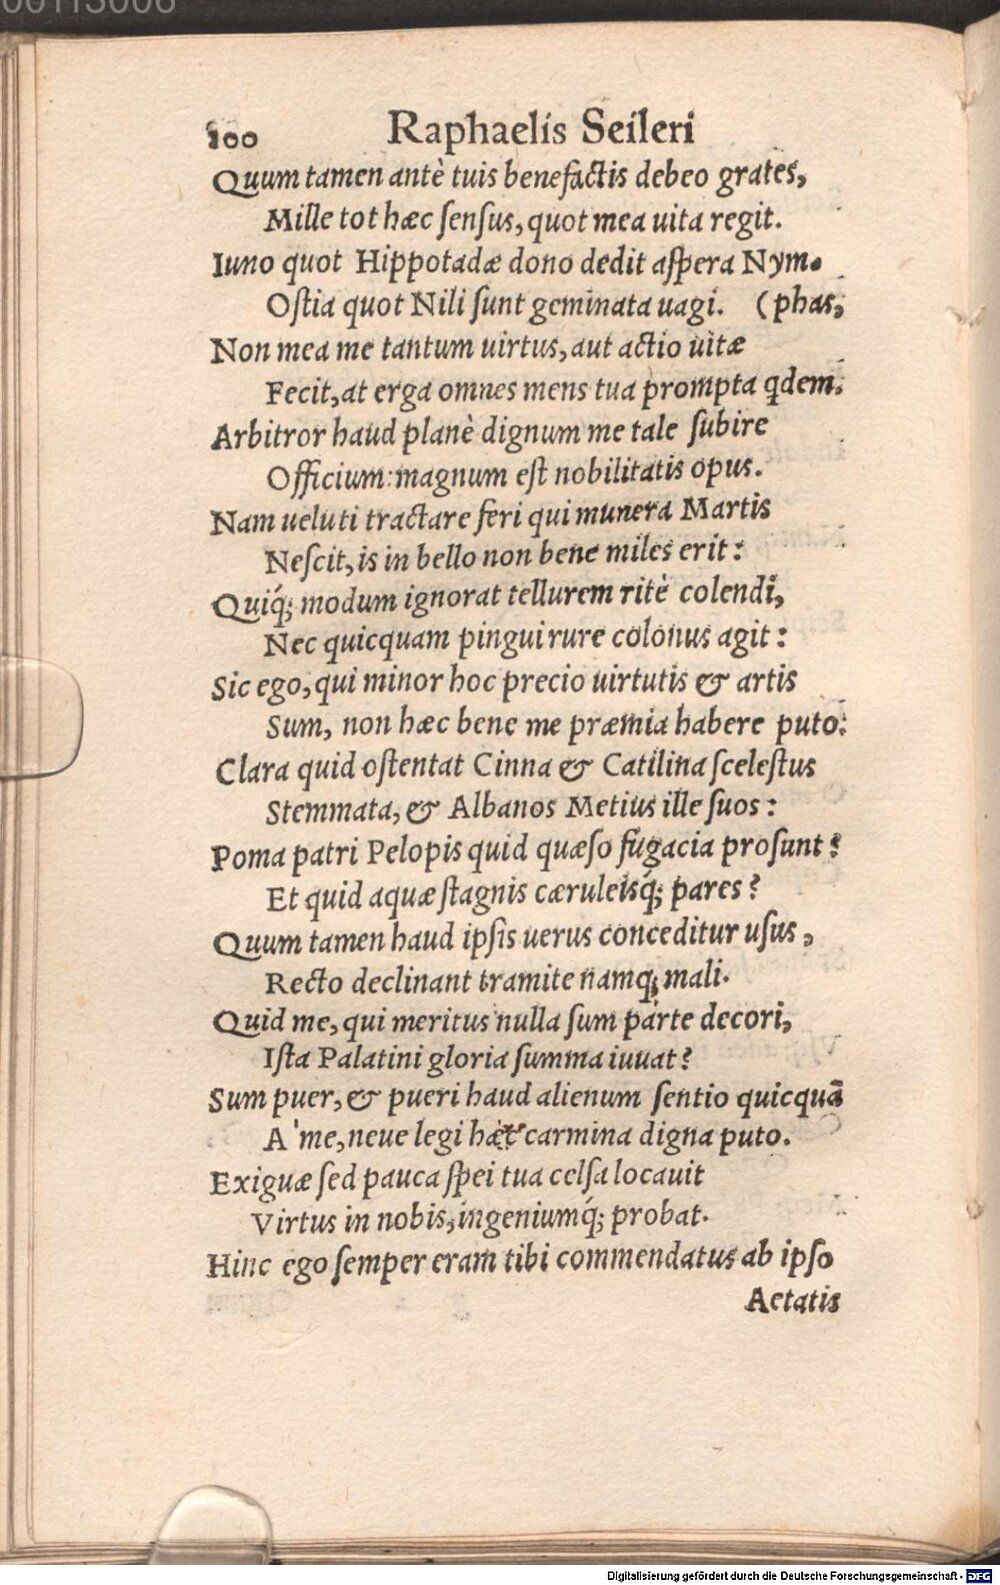 00113006
100 Raphaelis Seileri
Quum tamen antè tuis benefactis debeo grates,
Mille tot hæc ſenſus, quot mea uita regit.
Iuno quot Hippotadæ dono dedit aſpera Nym-
Oſtia quot Nili ſunt geminata uagi. (phas,
Non mea me tantum uirtus, aut actio uitæ
Fecit, at erga omnes mens tua prompta qdem.
Arbitror haud planè dignum me tale ſubire
Officium: magnum eſt nobilitatis opus.
Nam ueluti tractare feri qui munera Martis
Neſcit, is in bello non bene miles erit:
Quiq́; modum ignorat tellurem ritè colendi,
Nec quicquam pingui rure colonus agit:
Sic ego, qui minor hoc precio uirtutis & artis
Sum, non hæc bene me præmia habere puto.
Clara quid oſtentat Cinna & Catilina ſceleſtus
Stemmata, & Albanos Metius ille ſuos:
Poma patri Pelopis quid quæſo fugacia proſunt?
Et quid aquæ ſtagnis cæruleisq́; pares?
Quum tamen haud ipſis uerus conceditur uſus,
Recto declinant tramite namq; mali.
Quid me, qui meritus nulla ſum parte decori,
Iſta Palatini gloria ſumma iuuat?
Sum puer, & pueri haud alienum ſentio quicquā
A' me, neue legi hæc carmina digna puto.
Exiguæ ſed pauca ſpei tua celſa locauit
Virtus in nobis, ingeniumq́; probat.
Hinc ego ſemper eram tibi commendatus ab ipſo
Aetatis
Digitalisierung gefördert durch die Deutsche Forschungsgemeinschaft - DFG